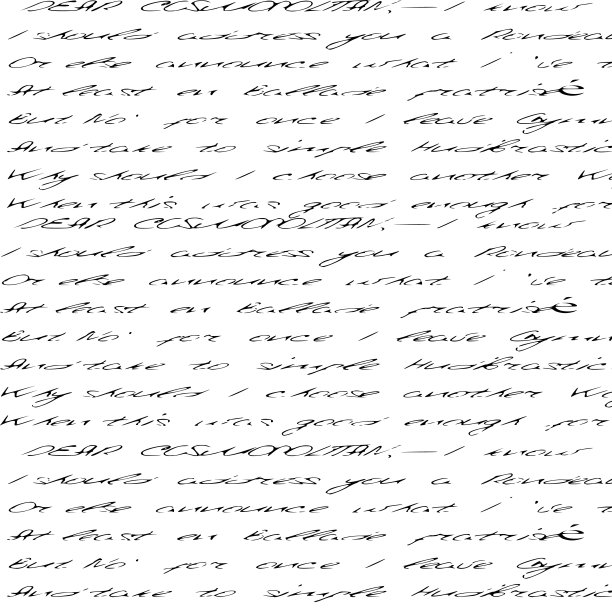 DEAR COSMOPOLITAN,—I know
I should address you a Rondeau
Or else announce what I've
At least en Ballade fratrisé
But No: for once I leave
And take to simple Hudibrastic
Why should I choose another
When this was good enough for
DEAR COSMOPOLITAN,—I know
I should address you a Rondeau
Or else announce what I've
At least en Ballade fratrisé
But No: for once I leave
And take to simple Hudibrastic
Why should I choose another
When this was good enough for
DEAR COSMOPOLITAN,—I know
I should address you a Rondeau
Or else announce what I've
At least en Ballade fratrisé
But No: for once I leave
And take to simple Hudibrastic